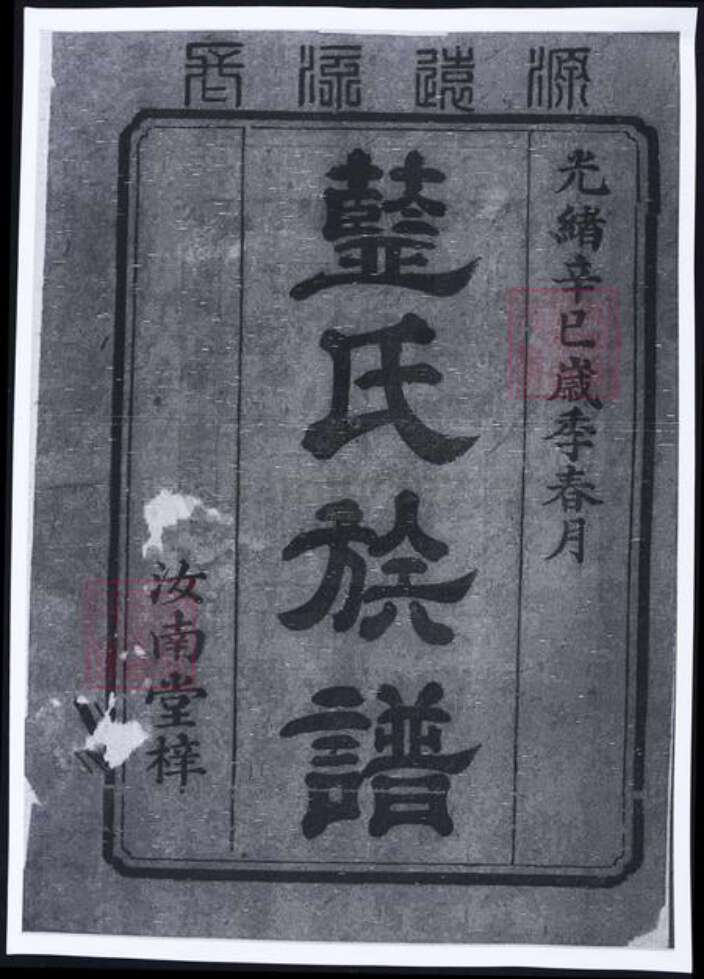 源遠流長
光緒辛巳歲季春月
藍氏族譜
汝南堂梓